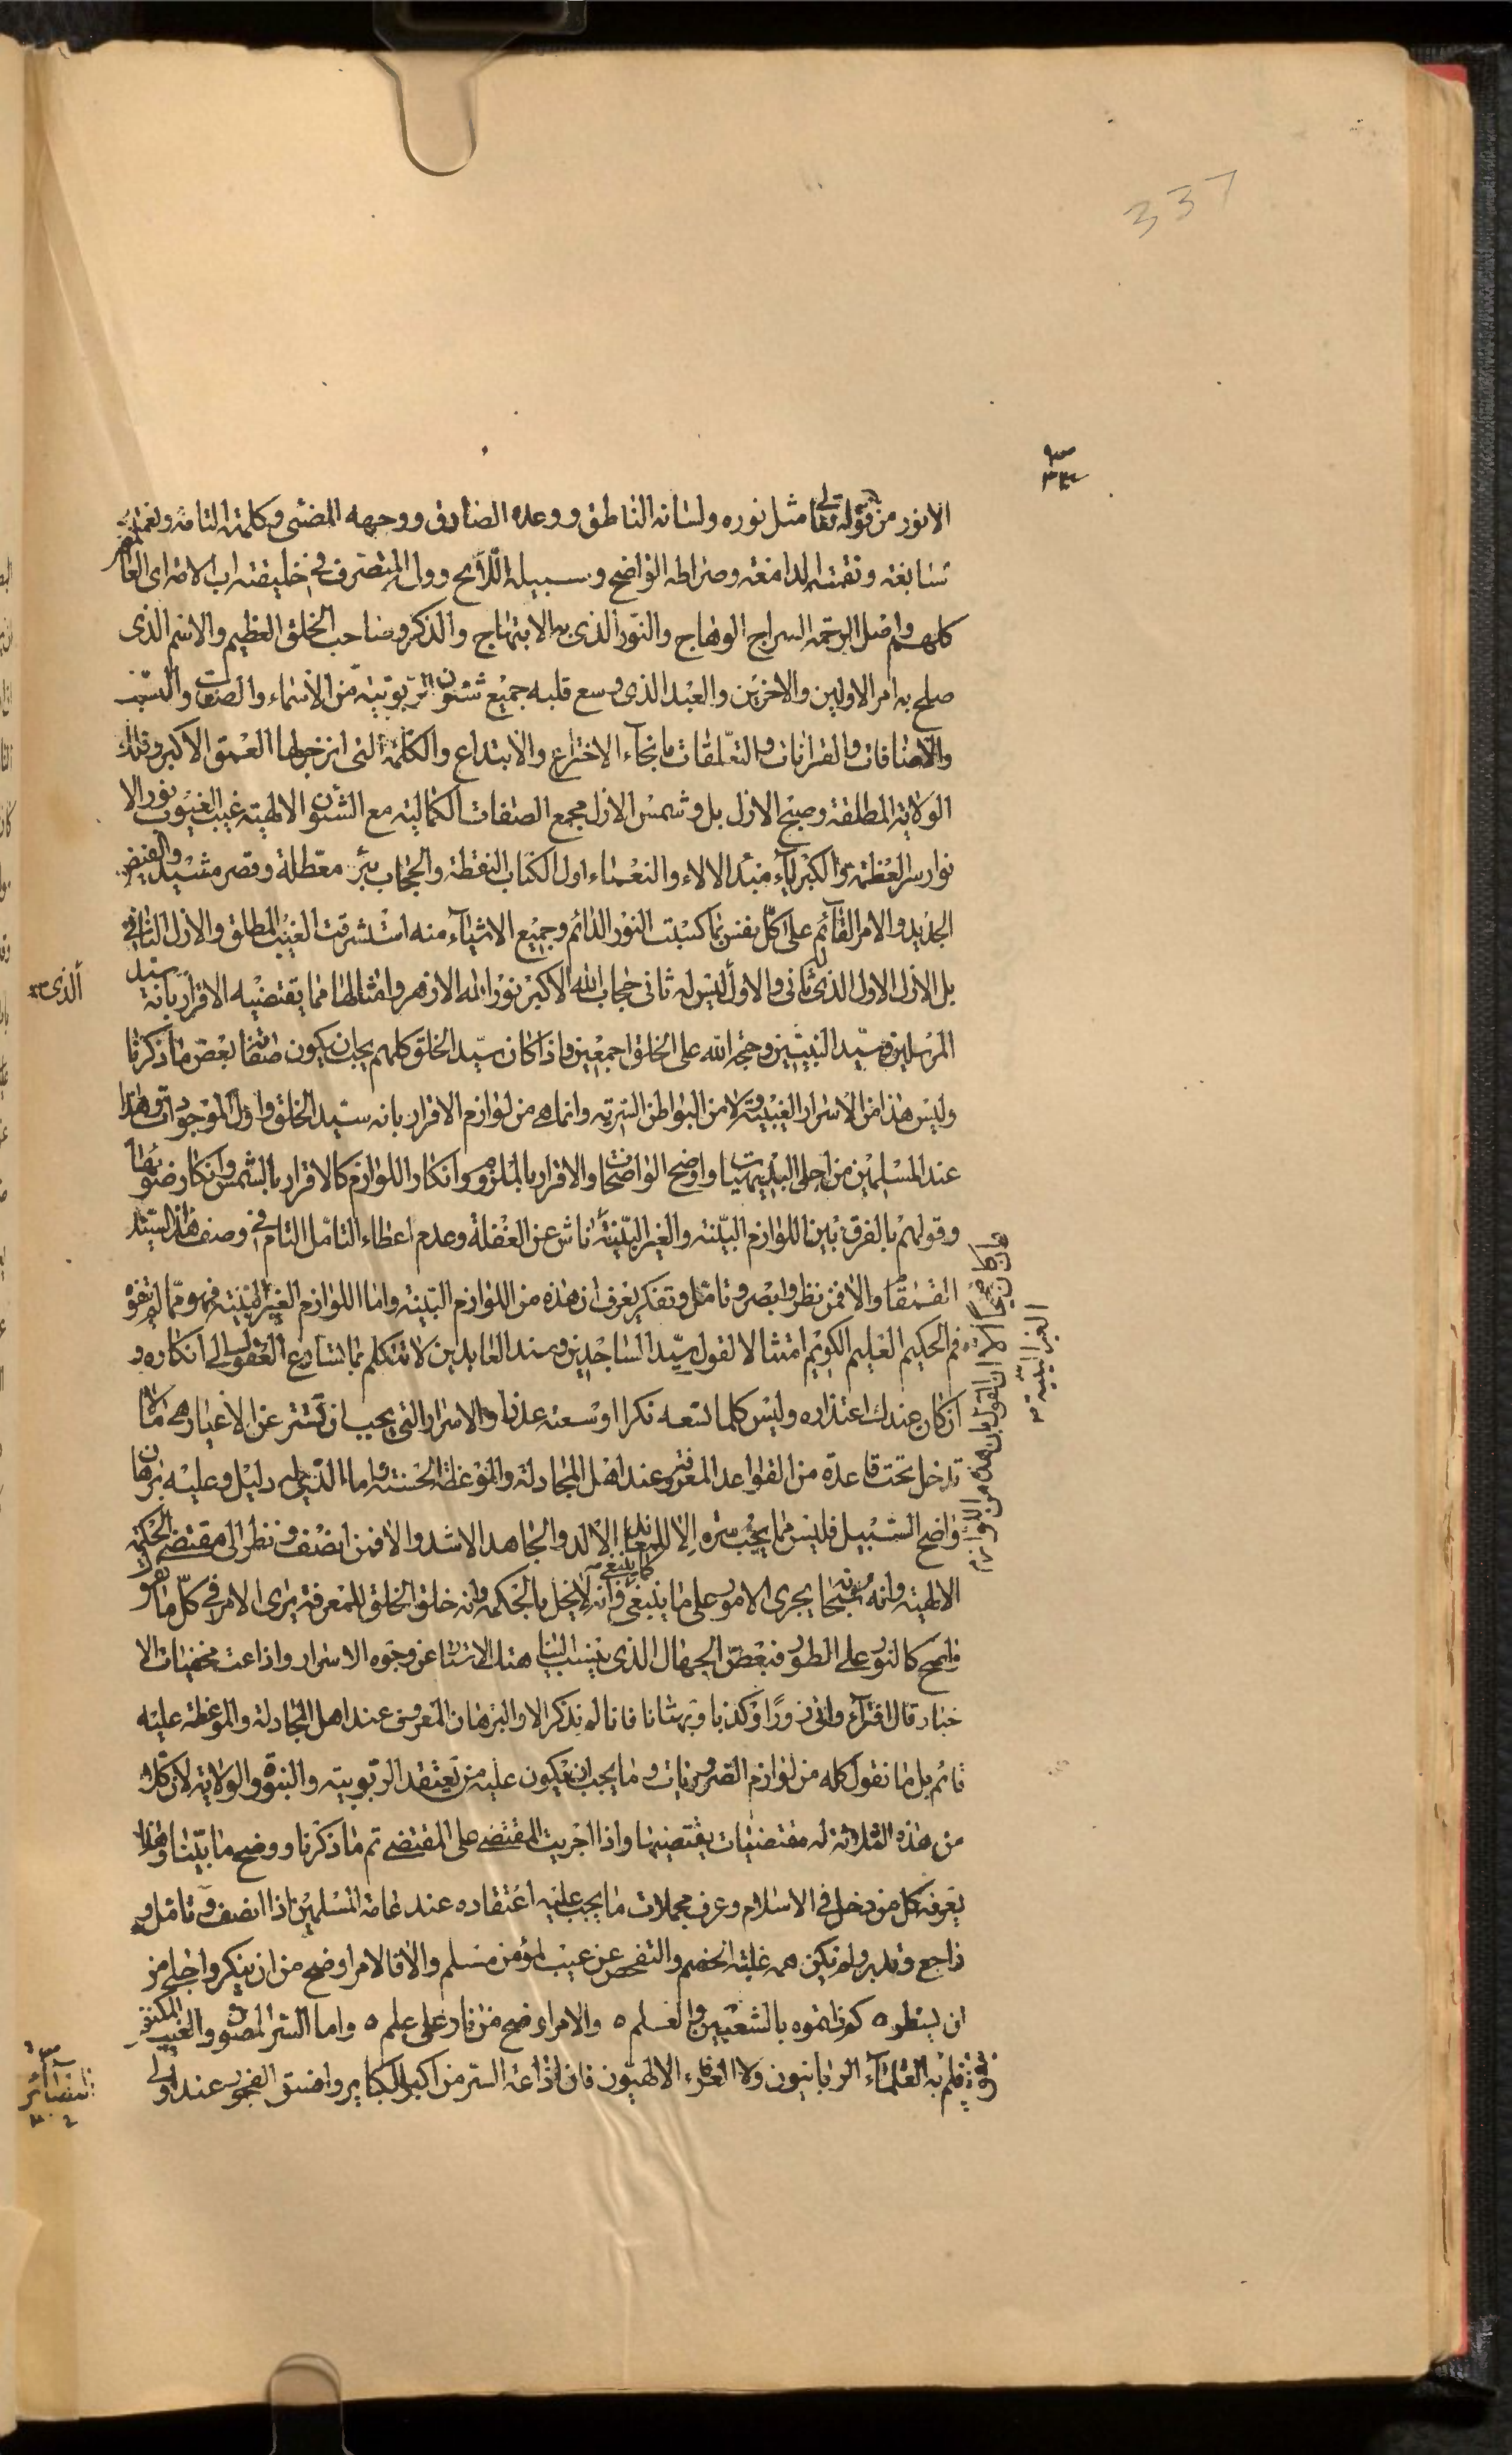 337
الانور من قوله تعالى مثل نوره ولسانه الناطق ووعده الصادق ووجهه المضئ وكلمته التامة ونعمته
السابغة ونقمته الدامغة وصراطه الواضح وسبيله اللائح وول المتصرف في خليفته اب الامة اى العالم
كلهم واصل الرحمة السراج الوهاج والنور الذى به الابتهاج والذكر وصاحب الخلق العظيم والاسم الذى
صلح به امر الاولين والاخرين والعبد الذى وسع قلبه جميع شئون الربوبية من الأسماء والصفات والنسب
والاضافات والقرانات والتعلقات بانحاء الاختراع والابتداع والكلمة التى انزجر لها العمق الاكبر وفلك
الولاية المطلقة وصبح الازل بل وشمس الازل مجمع الصفات الكمالية مع الشئون الالهية غيب الغيوب نور الا
نوار سر العظمة والكبرياء مبدء الالاء والنعماء اول الكتاب النقطة والحجاب بئر معطلة وقصر مشيد والفيض
الجديد والامر القائم على كل نفس بما كسبت النور الدائم وجميع الاشياء منه استشرقت الغيب المطلق والازل الثانى
بل الازل الاول الذى ثانى والاول ليس له ثانى حجاب الله الاكبر نور الله الازهر وامثالها مما يقتضيه الاقرار بانه سيد
الذى
المرسلين وسيد النبيين وحجة الله على الخلق اجمعين واذا كان سيد الخلق كلهم يجب ان يكون صفاته بعض ما ذكرنا
وليس هذا من الاسرار الغيبية ولا من البواطن السرية وانما هى من لوازم الاقرار بانه سيد الخلق واول الموجودات وهذا
عند المسلمين من اجلى البديهيات واوضح الواضحات والاقرار بالملزوم وانكار اللوازم كالاقرار بالشمس وانكار ضوئها
وقولهم بالفرق بين اللوازم البينة والغير البينة ناش عن الغفلة وعدم اعطاء التامل التام فى وصف هذا السيد
القمقام والا فمن نظر وابصر وتامل وتفكر يعرف ان هذه من اللوازم البينة واما اللوازم الغير البينة فهو مما لم نفوه
فم الحكيم العليم الكريم امتثالا لقول سيد الساجدين وسند العابدين لا تتكلم بما تسارع العقول الى انكاره و
ان كان عندك اعتذاره وليس كلما تسعه نكرا اوسعته عذرا والاسرار التى يجب ان تستر عن الاغيار هى ما لا
تدخل تحت قاعدة من القواعد المعروفة وعند اهل المجادلة والموعظة الحسنة واما الذى عليه دليل وعليه برهان
واضح السبيل فليس مما يجب ستره الا للمعاند الالد والجاهد الاشد والا فمن انصف ونظر الى مقتضى الحكمة
الالهية وانه سبحانه يجرى الامور على ما ينبغى كما ينبغى فانه لا يخل بالحكمة وانه خلق الخلق للمعرفة يرى الامر فى كل ما نقوله
واضح كالنور على الطور فبعض الجهال الذى ينسب الينا هتك الاستار عن وجوه الاسرار واذاعت مخفيات الا
خبار قال افتراء واتى زورا وكذبا وبهتانا فانا لم نذكر الا والبرهان المعروف عند اهل المجادلة والموعظة عليه
قائم بل ما نقول كله من لوازم الضروريات وما يجب ان يكون عليه من يعتقد الربوبية والنبوة والولاية لان كلا
من هذه الثلاثة له مقتضيات يقتضيها واذا اجريت المقتضى على المقتضى تم ما ذكرنا ووضح ما بينا وهذا
يعرفه كل من دخل فى الاسلام وعرف مجملات ما يجب عليه اعتقاده عند عامة المسلمين اذا انصف وتامل و
راجع وتدبر ولم تكن همه غلبة الخصم والتفحص عن عيب المؤمن مسلم والا فالامر اوضح من ان ينكر واجلى من
ان يسطر ٥ كم تموه بالشعبين والعلم ٥ والامر اوضح من نار على علم ٥ واما السر المصون والغيب المكنون
فلم به العلماء الربانيون ولا العرفاء الالهيون فان اذاعة السر من اكبر الكبائر وافسق الفجور عند اولى
البصائر
وان كان حقا الا ان القول بان هذه من اللوازم
الغير البينة